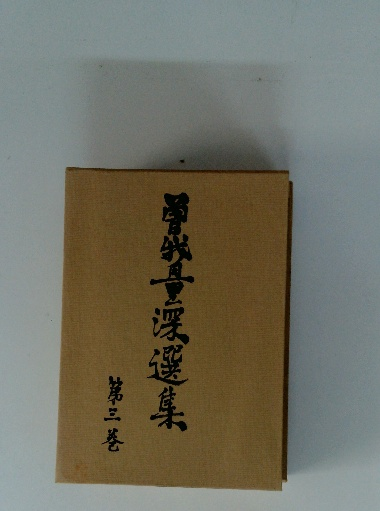 曽我量深選集
第三巻